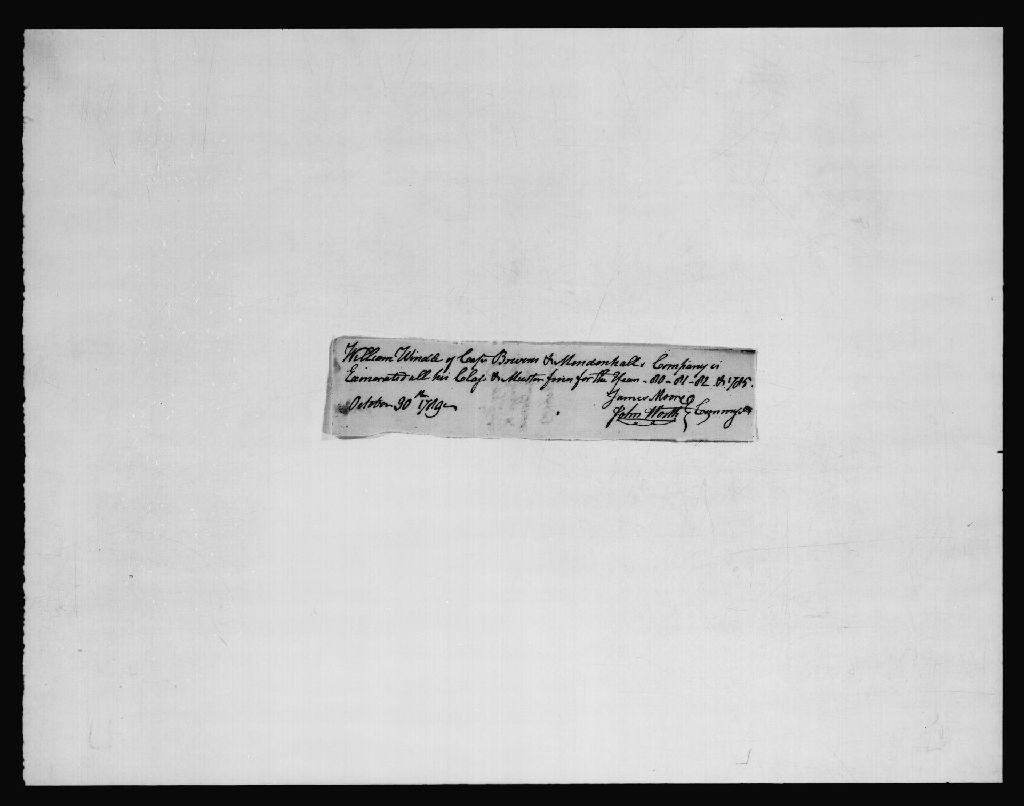 William Windle of Capt Brewers & Mendenhalls Company is
Exonerated all his Class & Muster fines for the Years - 80 - 81 - 82 & 1785.
James Moore
October 30th 1789 John Worth Commrs